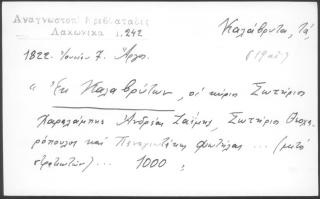 Αναγνωστοπ
Λακωνικα 1,242
Καλάβρυτα, τά,
(19 αἰ)
1822. Ἰουνίου 7. Ἄργος.
"Ἐκ Καλαβρύτων, οἱ κύριοι Σωτήριος
Χαραλάμπης Ἀνδρέας Ζαΐμης, Σωτήριος Θεοχα-
ρόπουλος καὶ Παναγιωτάκης Φωτήλας ... (μετὰ
στρατιωτῶν) ... 1000